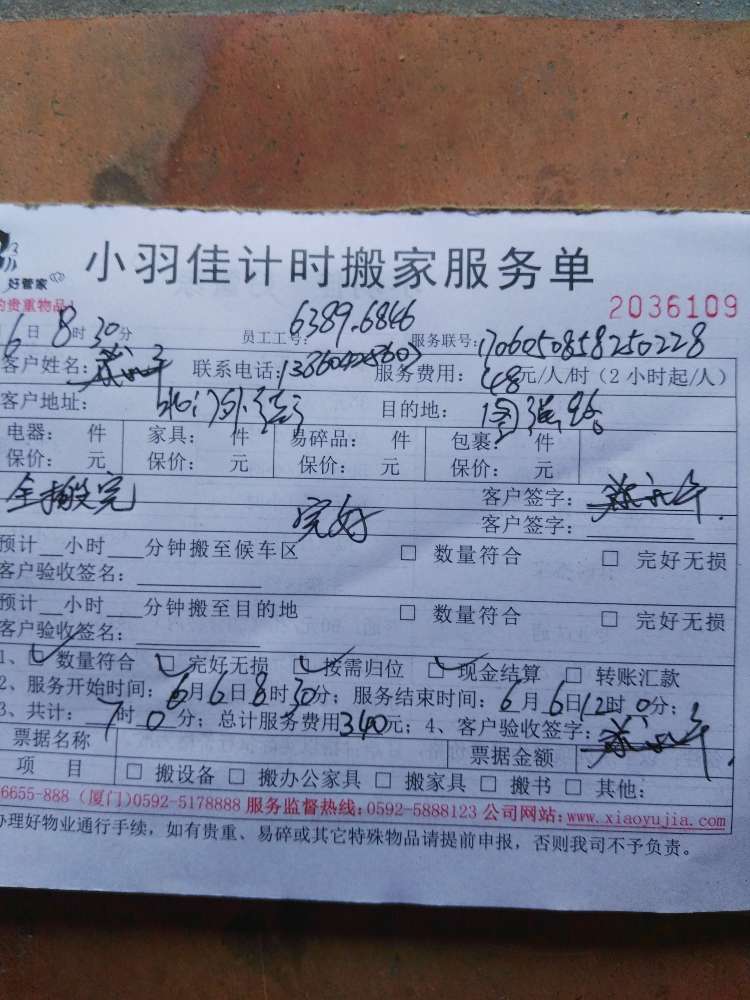 好管家
小羽佳计时搬家服务单
的贵重物品！
2036109
6日8时30分 员工工号: 6389.6846 服务联号:
客户姓名: 联系电话: 服务费用: 48元/人/时（2小时起/人）
客户地址: 目的地:
电器: 件 家具: 件 易碎品: 件 包裹: 件
保价: 元 保价: 元 保价: 元 保价: 元
全搬完 完好 客户签字:
客户签字:
预计__小时___分钟搬至候车区 □ 数量符合 □ 完好无损
客户验收签名:
预计__小时___分钟搬至目的地 □ 数量符合 □ 完好无损
客户验收签名:
1、☑数量符合 ☑完好无损 ☑按需归位 ☑现金结算 □ 转账汇款
2、服务开始时间: 6月6日8时30分; 服务结束时间: 6月6日12时0分;
3、共计: 7时0分; 总计服务费用340元; 4、客户验收签字:
票据名称 票据金额
项 目 □ 搬设备 □ 搬办公家具 □ 搬家具 □ 搬书 □ 其他:
6655-888 (厦门)0592-5178888 服务监督热线:0592-5888123 公司网站:www.xiaoyujia.com
办理好物业通行手续，如有贵重、易碎或其它特殊物品请提前申报，否则我司不予负责。